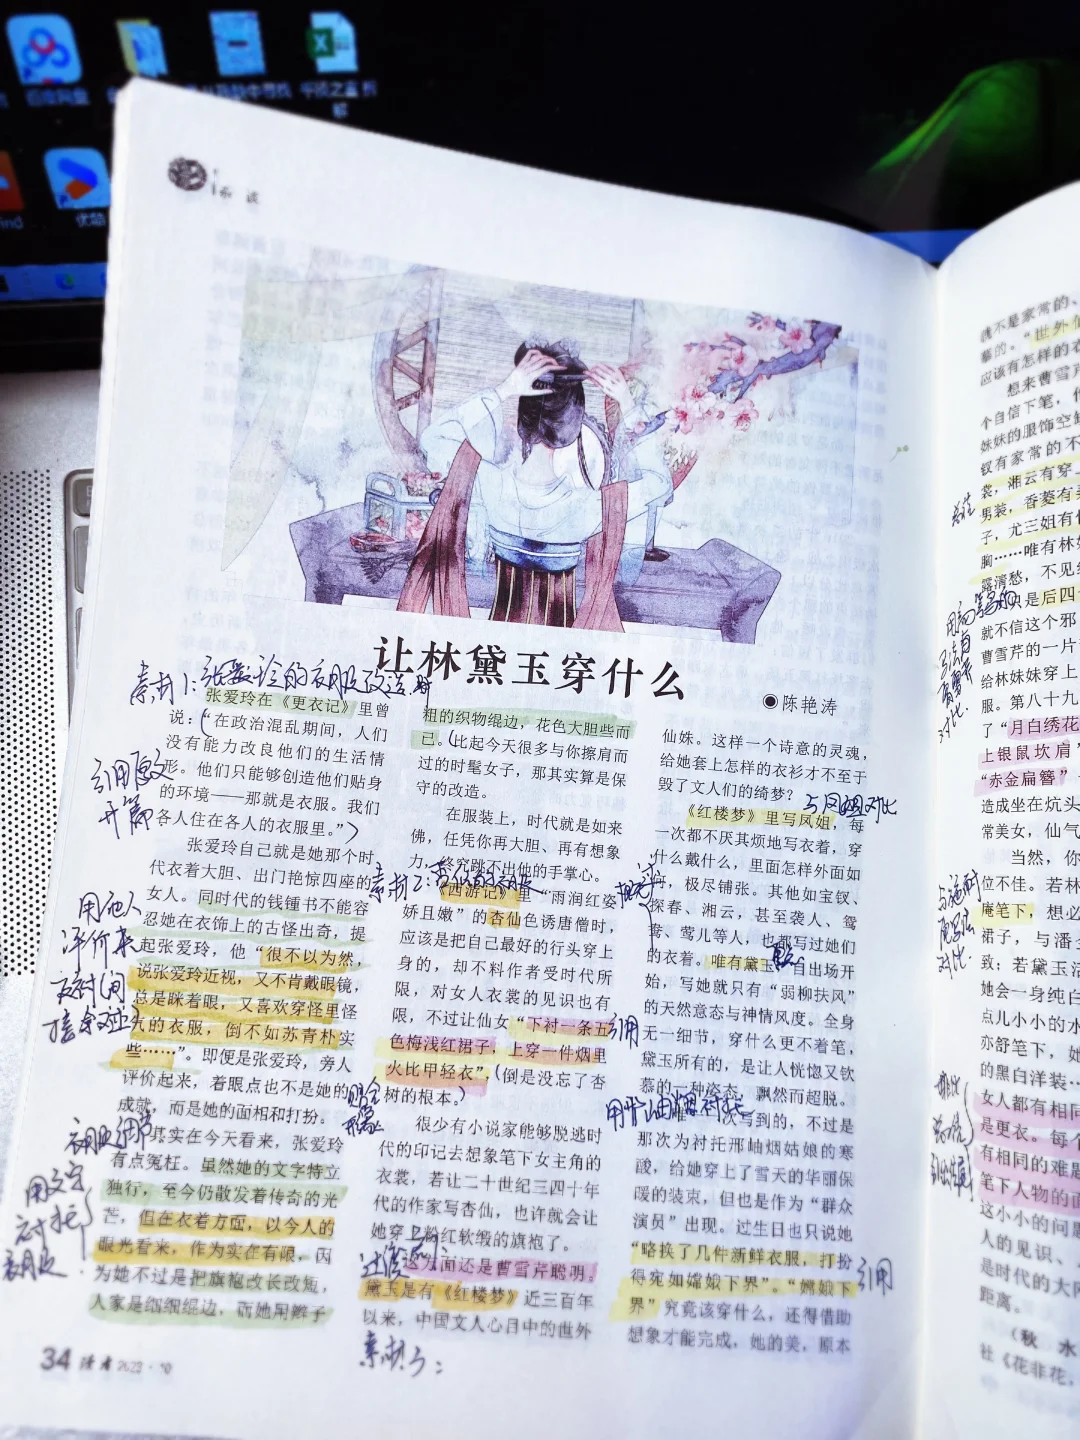 让林黛玉穿什么
◉陈艳涛
张爱玲在《更衣记》里曾
说：“在政治混乱期间，人们
没有能力改良他们的生活情
形。他们只能够创造他们贴身
的环境——那就是衣服。我们
各人住在各人的衣服里。”
张爱玲自己就是她那个时
代衣着大胆、出门艳惊四座的
女人。同时代的钱锺书不能容
忍她在衣饰上的古怪出奇，提
起张爱玲，他“很不以为然，
说张爱玲近视，又不肯戴眼镜，
总是眯着眼，又喜欢穿怪里怪
气的衣服，倒不如苏青朴实
些……”。即便是张爱玲，旁人
评价起来，着眼点也不是她的
成就，而是她的面相和打扮。
其实在今天看来，张爱玲
有点冤枉。虽然她的文字特立
独行，至今仍散发着传奇的光
芒，但在衣着方面，以今人的
眼光看来，作为实在有限，因
为她不过是把旗袍改长改短，
人家是细细绲边，而她用辫子
粗的织物绲边，花色大胆些而
已。比起今天很多与你擦肩而
过的时髦女子，那其实算是保
守的改造。
在服装上，时代就是如来
佛，任凭你再大胆、再有想象
力，终究跳不出他的手掌心。
《西游记》里“雨润红姿
娇且嫩”的杏仙色诱唐僧时，
应该是把自己最好的行头穿上
身的，却不料作者受时代所
限，对女人衣裳的见识也有
限，不过让仙女“下衬一条五
色梅浅红裙子，上穿一件烟里
火比甲轻衣”，（倒是没忘了杏
树的根本。）
很少有小说家能够脱逃时
代的印记去想象笔下女主角的
衣裳，若让二十世纪三四十年
代的作家写杏仙，也许就会让
她穿上粉红软缎的旗袍了。
这方面还是曹雪芹聪明。
黛玉是有《红楼梦》近三百年
以来，中国文人心目中的世外
仙姝。这样一个诗意的灵魂，
给她套上怎样的衣衫才不至于
毁了文人们的绮梦？
《红楼梦》里写凤姐，每
一次都不厌其烦地写衣着，穿
什么戴什么，里面怎样外面如
何，极尽铺张。其他如宝钗、
探春、湘云，甚至袭人、鸳
鸯、莺儿等人，也都写过她们
的衣着。唯有黛玉，自出场开
始，写她就只有“弱柳扶风”
的天然意态与神情风度。全身
无一细节，穿什么更不着笔，
黛玉所有的，是让人恍惚又钦
慕的一种姿态，飘然而超脱。
写到的，不过是
那次为衬托邢岫烟姑娘的寒
酸，给她穿上了雪天的华丽保
暖的装束，但也是作为“群众
演员”出现。过生日也只说她
“略换了几件新鲜衣服，打扮
得宛如嫦娥下界”。“嫦娥下
界”究竟该穿什么，还得借助
想象才能完成，她的美，原本
34 读者 2022·10
素材1：张爱玲的衣服改造
引用原文
开篇
用他人
评价来
衣服细节
用文字
衬托
衣服
素材2：
素材3：
引用
与凤姐对比
引用
就不是家常的、
应该有怎样的衣
想来曹雪芹
个自信下笔，
妹妹的服饰空
钗有家常的不
裳，湘云有穿
男装，香菱有
子，尤三姐有
胸……唯有林
露清愁，不见
只是后四十
就不信这个邪
曹雪芹的一片
给林妹妹穿上
服。第八十九
了“月白绣花
上银鼠坎肩”
“赤金扁簪”
造成坐在炕头
常美女，仙气
当然，你
位不佳。若林
庵笔下，想必
裙子，与潘金
致；若黛玉活
她会一身纯白
点儿小小的水
亦舒笔下，她
的黑白洋装…
女人都有相同
是更衣。每个
有相同的难题
笔下人物的面
这小小的问题
人的见识、
是时代的大
距离。
（秋 水
社《花非花，
对比
对比